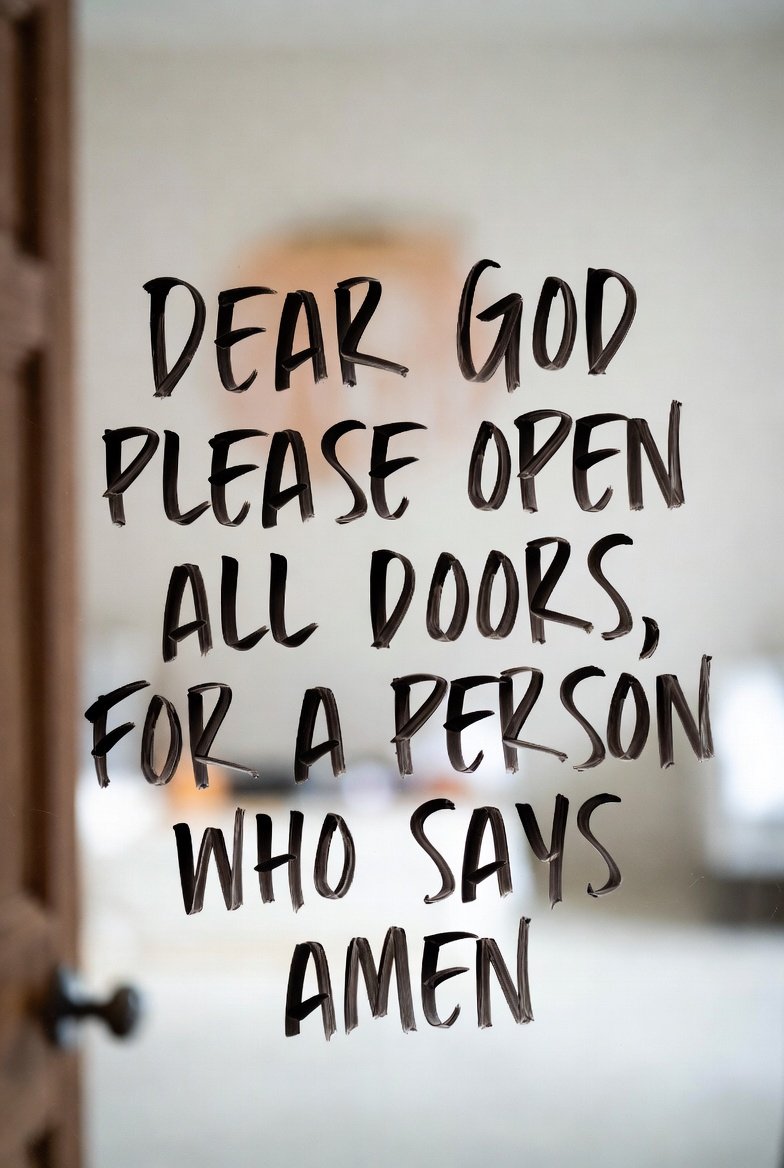 DEAR GOD
PLEASE OPEN
ALL DOORS,
FOR A PERSON
WHO SAYS
AMEN